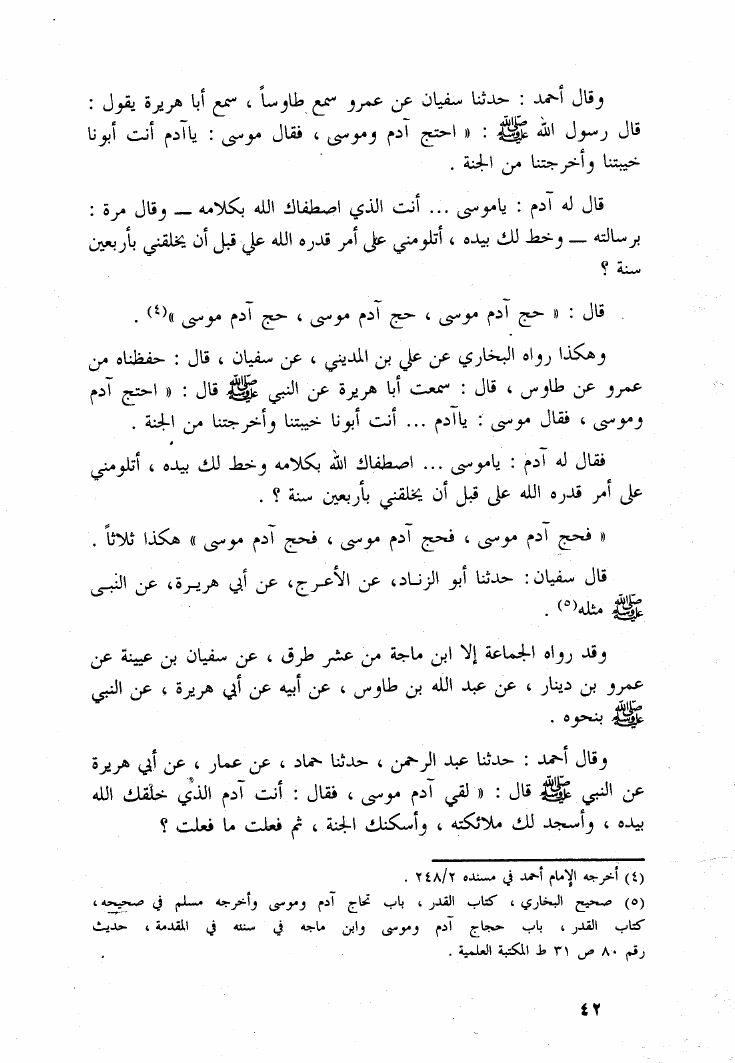 وقال أحمد : حدثنا سفيان عن عمرو سمع طاوساً ، سمع أبا هريرة يقول :
قال رسول الله ﷺ : « احتج آدم وموسى ، فقال موسى : ياآدم أنت أبونا
خيبتنا وأخرجتنا من الجنة .
قال له آدم : ياموسى ... أنت الذي اصطفاك الله بكلامه ــ وقال مرة :
برسالته ــ وخط لك بيده ، أتلومني على أمر قدره الله علي قبل أن يخلقني بأربعين
سنة ؟
قال : « حج آدم موسى ، حج آدم موسى ، حج آدم موسى »(٤) .
وهكذا رواه البخاري عن علي بن المديني ، عن سفيان ، قال : حفظناه من
عمرو عن طاوس ، قال : سمعت أبا هريرة عن النبي ﷺ قال : « احتج آدم
وموسى ، فقال موسى : ياآدم ... أنت أبونا خيبتنا وأخرجتنا من الجنة .
فقال له آدم : ياموسى ... اصطفاك الله بكلامه وخط لك بيده ، أتلومني
على أمر قدره الله على قبل أن يخلقني بأربعين سنة ؟ .
« فحج آدم موسى ، فحج آدم موسى ، فحج آدم موسى » هكذا ثلاثاً .
قال سفيان : حدثنا أبو الزناد، عن الأعرج، عن أبي هريرة، عن النبي
ﷺ مثله(٥) .
وقد رواه الجماعة إلا ابن ماجة من عشر طرق ، عن سفيان بن عيينة عن
عمرو بن دينار ، عن عبد الله بن طاوس ، عن أبيه عن أبي هريرة ، عن النبي
ﷺ بنحوه .
وقال أحمد : حدثنا عبد الرحمن ، حدثنا حماد ، عن عمار ، عن أبي هريرة
عن النبي ﷺ قال : « لقي آدم موسى ، فقال : أنت آدم الذي خلقك الله
بيده ، وأسجد لك ملائكته ، وأسكنك الجنة ، ثم فعلت ما فعلت ؟
(٤) أخرجه الإمام أحمد في مسنده ٢٤٨/٢ .
(٥) صحيح البخاري ، كتاب القدر ، باب تحاج آدم وموسى وأخرجه مسلم في صحيحه ،
كتاب القدر ، باب حجاج آدم وموسى وابن ماجه في سننه في المقدمة ، حديث
رقم ٨٠ ص ٣١ ط المكتبة العلمية .
٤٢